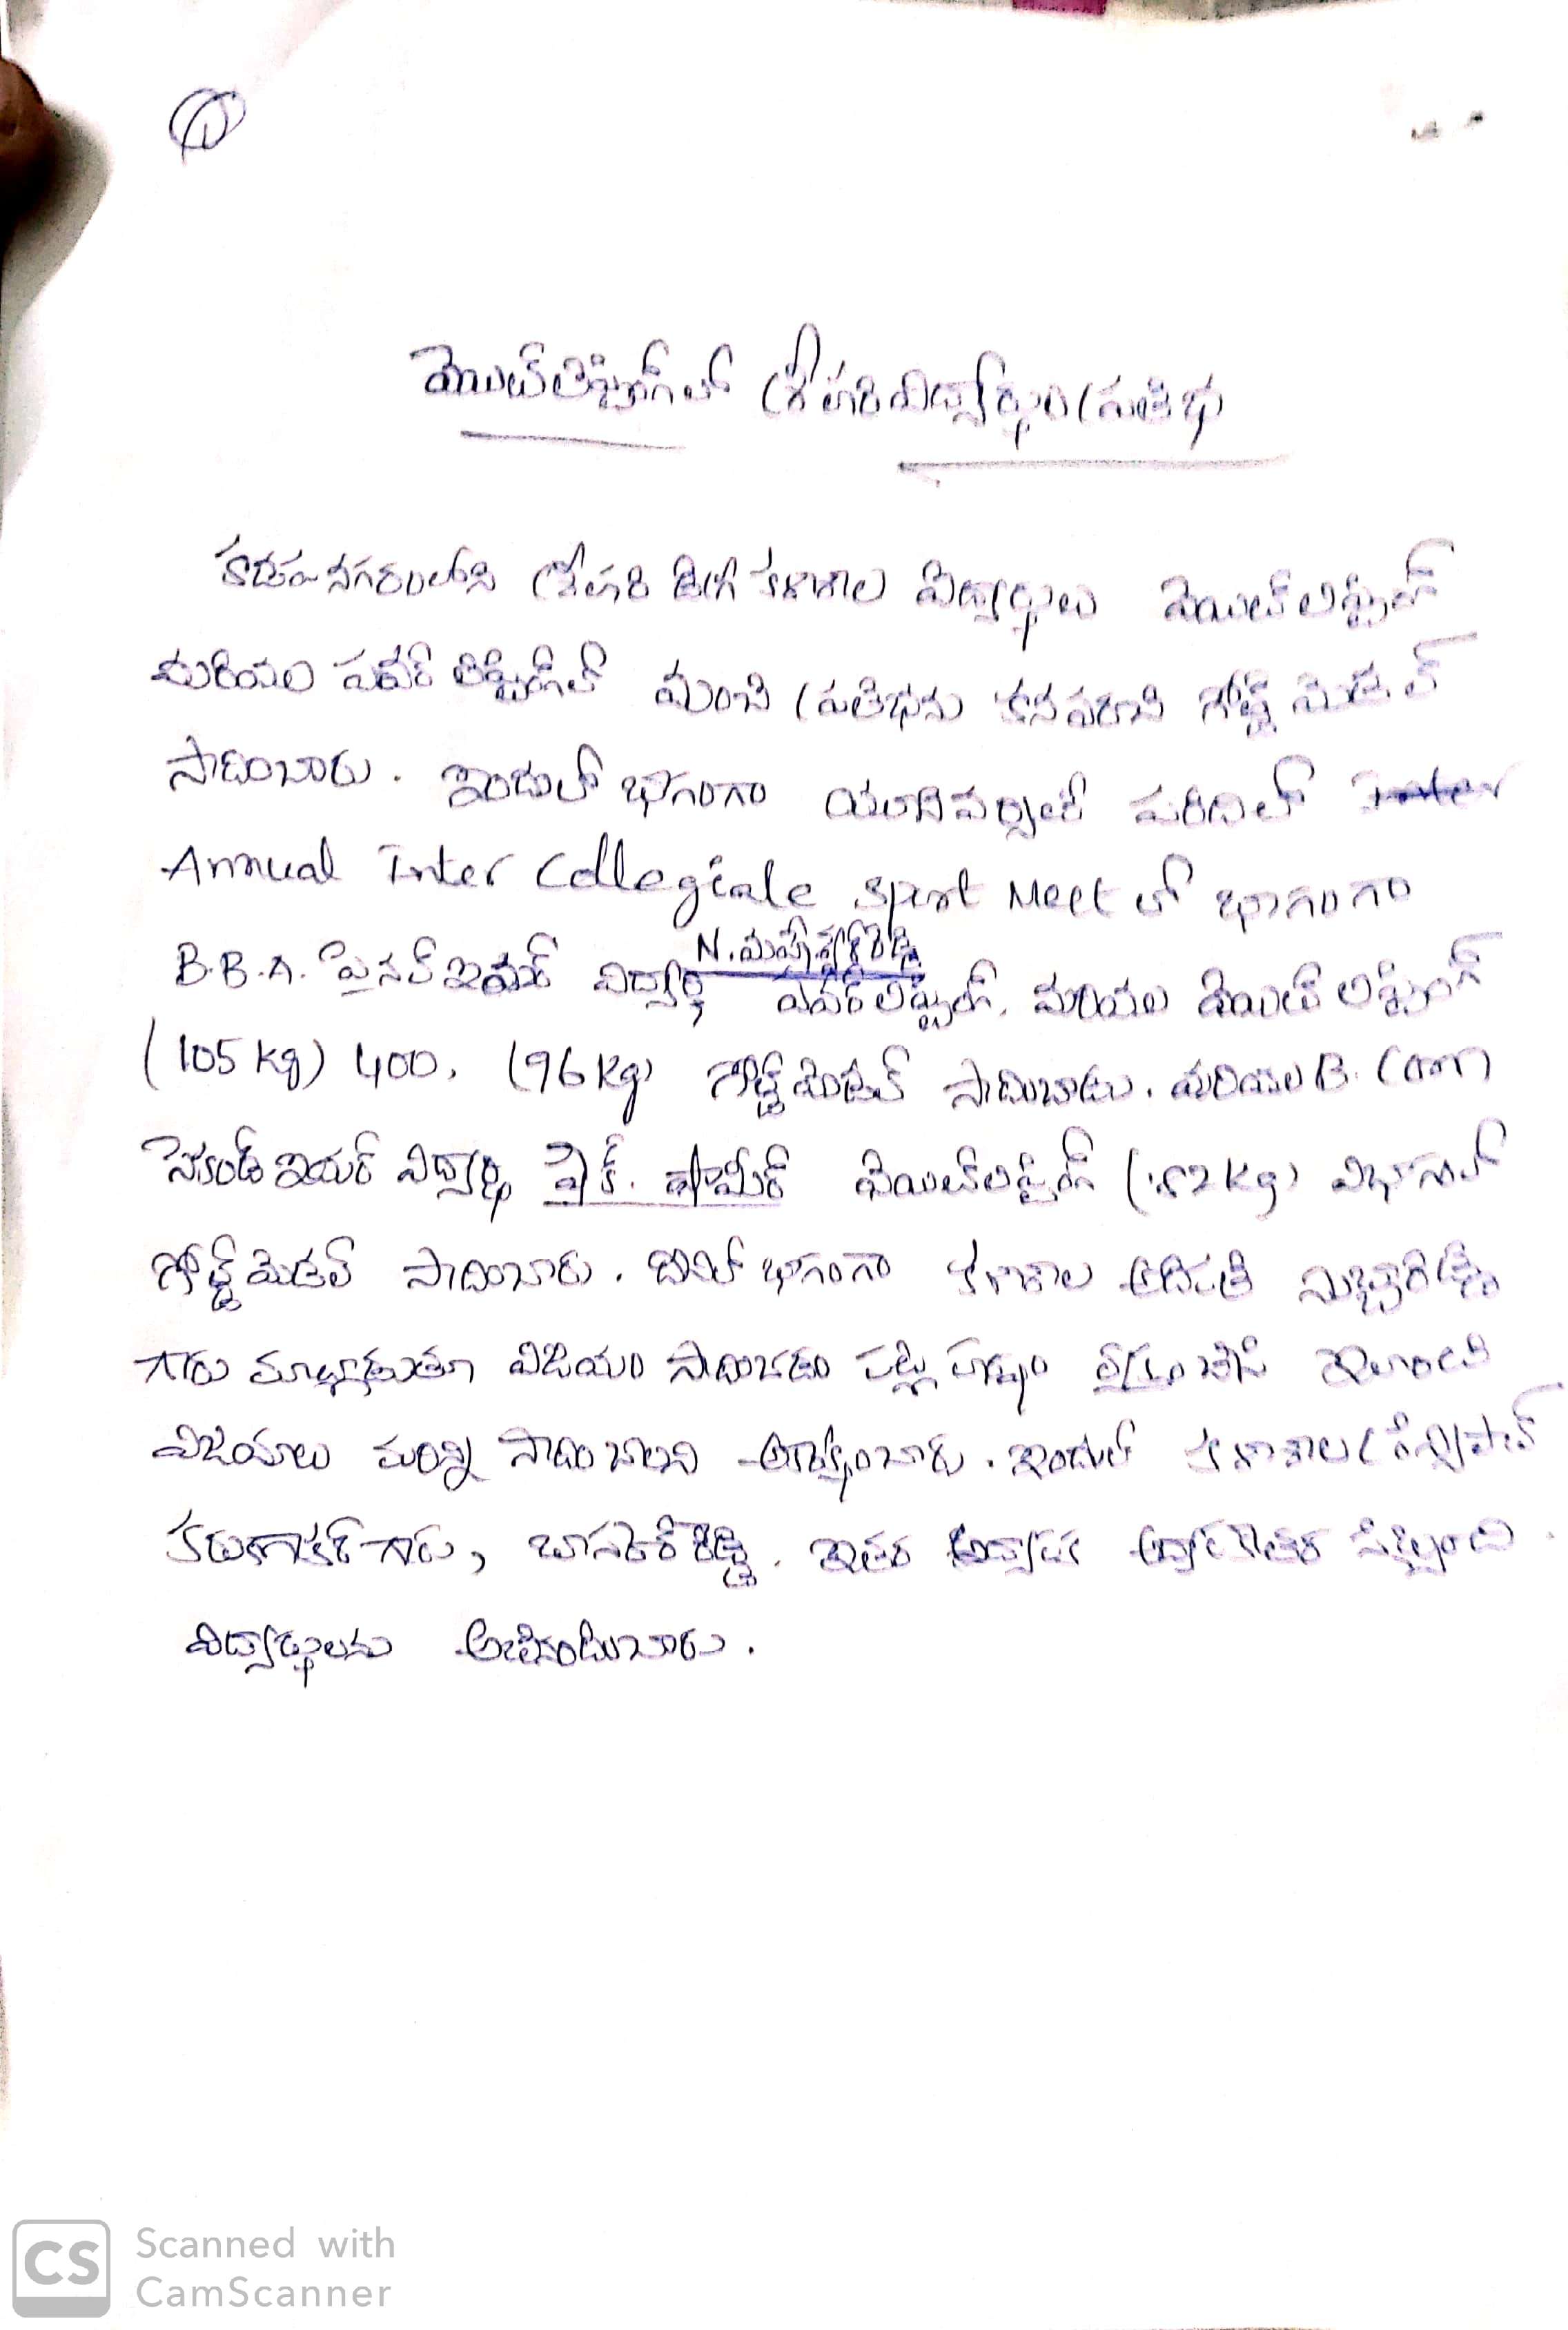 వెయిట్ లిఫ్టింగ్ లో శ్రీహరి విద్యార్థుల ప్రతిభ
కడప నగరంలోని శ్రీహరి డిగ్రీ కళాశాల విద్యార్థులు వెయిట్ లిఫ్టింగ్
మరియు పవర్ లిఫ్టింగ్ లో మంచి ప్రతిభను కనపరచి గోల్డ్ మెడల్
సాదించారు. ఇందులో భాగంగా యూనివర్సిటీ పరిదిలో
Annual Inter Collegiale Sport Meet లో భాగంగా
B.B.A. ఫైనల్ ఇయర్ విద్యార్థి N. మహేశ్వర్ రెడ్డి పవర్ లిఫ్టింగ్. మరియు వెయిట్ లిఫ్టింగ్
(105 kg) 400, (96 kg) గోల్డ్ మెడల్ సాదించాడు. మరియు B. Com
సెకండ్ ఇయర్ విద్యార్థి షేక్. షామీర్ వెయిట్ లిఫ్టింగ్ (82 kg) విభాగంలో
గోల్డ్ మెడల్ సాదించారు. దీనిలో భాగంగా కళాశాల అదిపతి సుబ్బారెడ్డి
గారు మాట్లాడుతూ విజయం సాదించడం పట్ల హర్షం వ్యక్తం చేసి ఇలాంటి
విజయాలు మరిన్ని సాదించాలని ఆకాక్షించారు. ఇందులో కళాశాల ప్రిన్సిపాల్
కరుణాకర్ గారు, భాస్కర్ రెడ్డి. ఇతర అద్యాపక అద్యాపకేతర సిబ్బంది
విద్యార్థులను అభినందించారు.
CS Scanned with
CamScanner